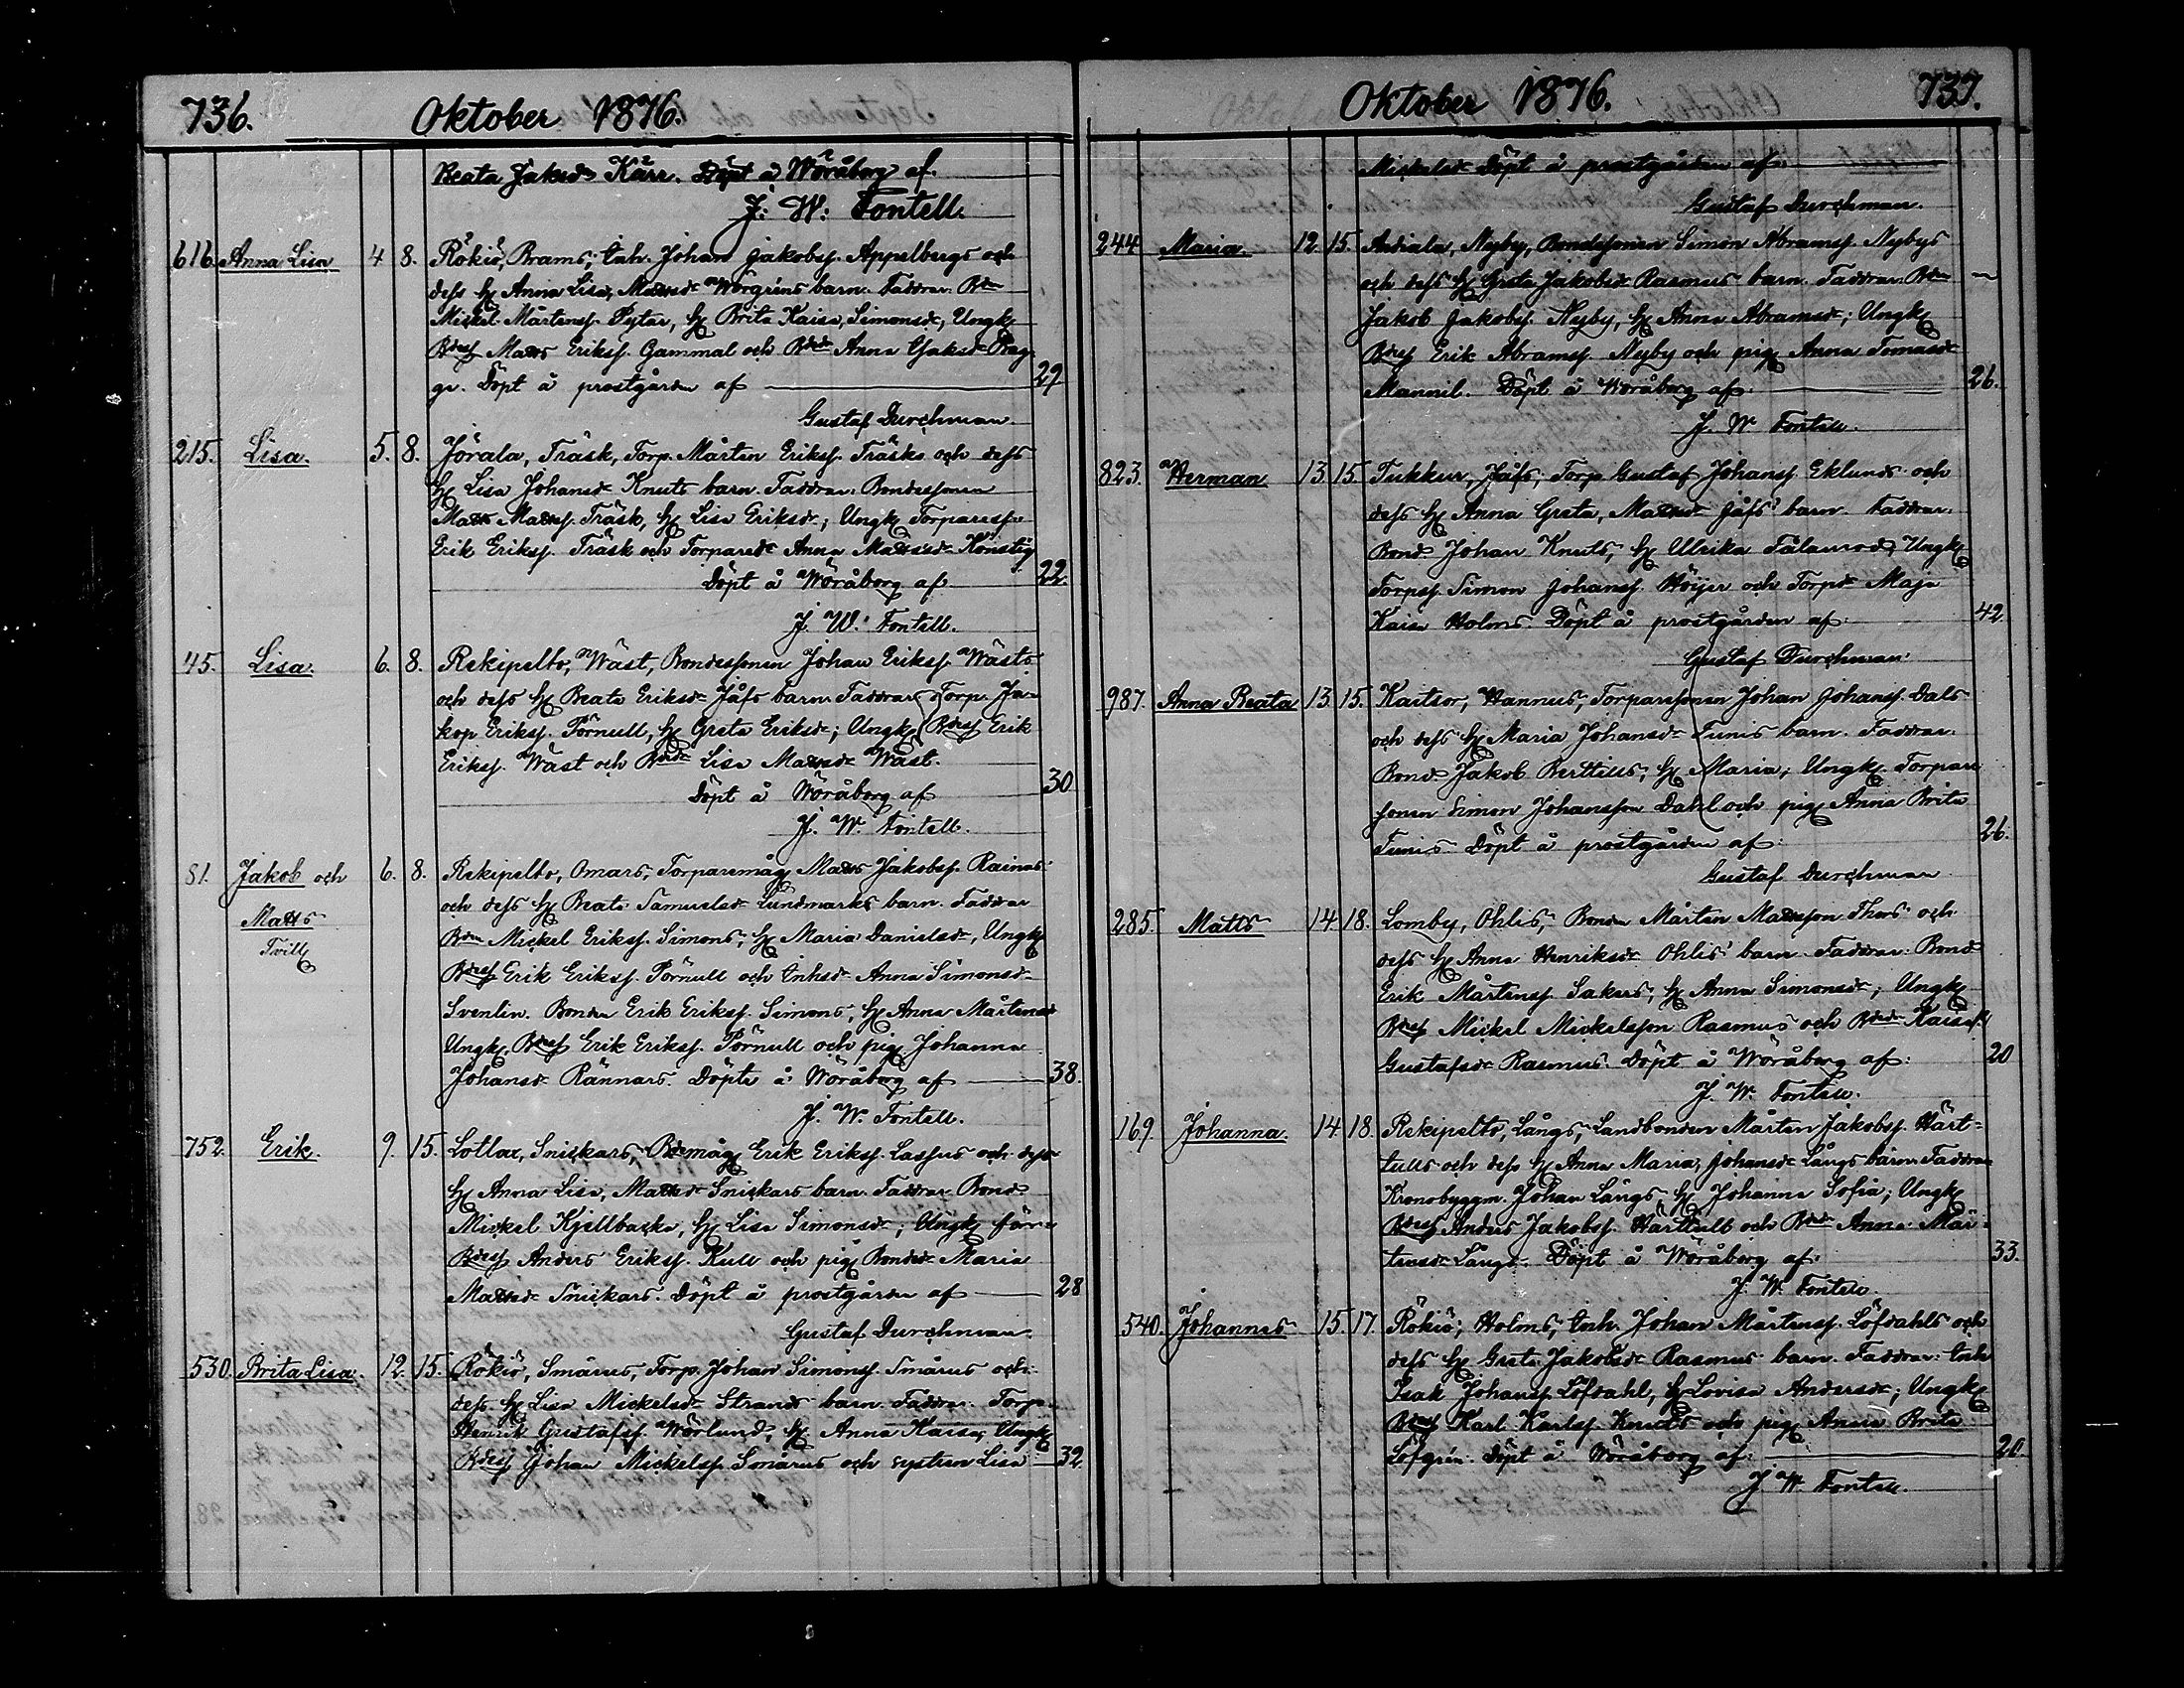 736.
Oktober 1876.
Beata Jaksdr Kärr. Döpt å Wöråborg af
J. W. Fontell.
616. Anna Lisa 4 8. Rökiö, Brams, Inh. Johan Jakobss. Appelbergs och
dess H. Anna Lisa, Mattsdr Wörgréns barn. Faddrar: Bdn
Mickel Mårtenss. Pytar, H. Brita Kaisa, Simonsdr, Ungk
Bdess Matts Erikss. Gammal och Bdedr Anna Jaksdr Prag-
gr. Döpt å prostgården af 29
Gustaf Durchman.
215. Lisa. 5. 8. Jörala, Träsk, Torp. Mårten Erikss. Träsks och dess
H. Lisa Johansdr Knuts barn. Faddrar: Bondessonen
Matts Mattss. Träsk, H. Lisa Eriksdr; Ungk Torparess.
Erik Erikss. Träsk och Torparedr Anna Mattsdr Könstig
Döpt å Wöråborg af 22.
J. W. Fontell.
45. Lisa. 6. 8. Rekipelto, Wäst, Bondessonen Johan Erikss. Wästs
och dess H. Beata Eriksdr Jåfs barn. Faddrar: Torp. Ja-
kop Erikss. Pörnull, H. Greta Eriksdr; Ungk Bdess Erik
Erikss. Wäst och Bdedr Lisa Mattsdr Wäst.
Döpt å Wöråborg af 30
J. W. Fontell.
81. Jakob och 6. 8. Rekipelto, Omars, Torparemåg Matts Jakobss. Rainas
och dess H. Beata Samuelsdr Lundmarks barn. Faddrar
Matts
Bdn Mickel Erikss. Simons, H. Maria Danielsdr, Ungk
Tvill
Bdess Erik Erikss. Pörnull och Inhsdr Anna Simonsdr
Svenlin. Bonden Erik Erikss. Simons, H. Anna Mårtensdr
Ungk. Bdess Erik Erikss. Pörnull och pig Johanna
Johansdr Rännars. Döpte å Wöråborg af 38.
J. W. Fontell.
752. Erik. 9. 15. Lotlax, Snickars, Bdemåg Erik Erikss. Lassus och dess
H. Anna Lisa, Mattsdr Snickars barn. Faddrar Bond
Mickel Kjellbacka, H. Lisa Simonsdr; Ungk för-
Bdess Anders Erikss. Kull och pig Bondedr Maria
Mattsdr Snickars. Döpt å prostgården af 28
Gustaf Durchman.
530. Brita Lisa. 12. 15. Rökiö, Smårus, Torp. Johan Simonss. Smårus och
dess H. Lisa Mickelsdr Strands barn. Faddrar: Torp.
Henrik Gustafss. Wörlund, H. Anna Kaisa; Ungk
Bdess Johan Mickelss. Smårus och systren Lisa 32.
Oktober 1876.
737.
Mickelsdr Döpt å prostgården af
Gustaf Durchman.
244 Maria. 12. 15. Andiala, Nyby, Bondesonen Simon Abramss. Nybys
och dess H. Greta Jakobsdr Rasmus barn. Faddrar: Bdn
Jakob Jakobss. Nyby, H. Anna Abramsdr; Ungk
Bdess Erik Abramss. Nyby och pig Anna Tomasdr
Mannil. Döpt å Wöråborg af 26.
J. W. Fontell.
823. Herman 13. 15. Tukkur, Jåfs, Torp Gustaf Johanss. Eklunds och
dess H. Anna Greta, Mattsdr Jåfs' barn. Faddrar:
Bond Johan Knuts, H. Ulrika Tålamod; Ungk
Torpss. Simon Johanss. Höijer och Torpdr Maja
Kaisa Holms. Döpt å prostgården af 42.
Gustaf Durchman.
987. Anna Beata 13. 15. Kaitsor, Hannus, Torparesonen Johan Johanss. Dals
och dess H. Maria Johansdr Tunis barn. Faddrar:
Bond Jakob Berttils, H. Maria; Ungk. Torpare
sonen Simon Johansson Dahl och pig Anna Brita
Tunis. Döpt å prostgården af: 26.
Gustaf Durchman
285. Matts 14. 18. Lomby, Ohlis, Bonden Mårten Mattsson Thors och
dess H. Anna Henriksdr Ohlis' barn. Faddrar: Bond
Erik Mårtenss. Sakris, H. Anna Simonsdr; Ungk
Bdess Mickel Mickelsson Rasmus och Bdedr Kaisa
Gustafsdr Rasmus. Döpt å Wöråborg af: 20
J. W. Fontell.
169. Johanna. 14. 18. Rekipelto, Långs, Landbonden Mårten Jakobss. Härt-
tulls och dess H. Anna Maria, Johansdr Långs barn. Faddrar
Kronobyggm. Johan Långs H. Johanna Sofia; Ungk
Bdess Anders Jakobss. Härtull och Bdedr Anna Mår-
tensdr Långs. Döpt å Wöråborg af: 33.
J. W. Fontell.
540. Johannes 15. 17. Rökiö, Holms, Inh. Johan Mårtenss. Löfdahls och
dess H. Greta Jakobsdr Rasmus barn. Faddrar: Inh
Isak Johanss. Löfdahl, H. Lovisa Andersdr; Ungk
Bdess Karl Karlss. Knuts och pig Anna Brita
Löfgrén. Döpt å Wöråborg af 20.
J. W. Fontell.